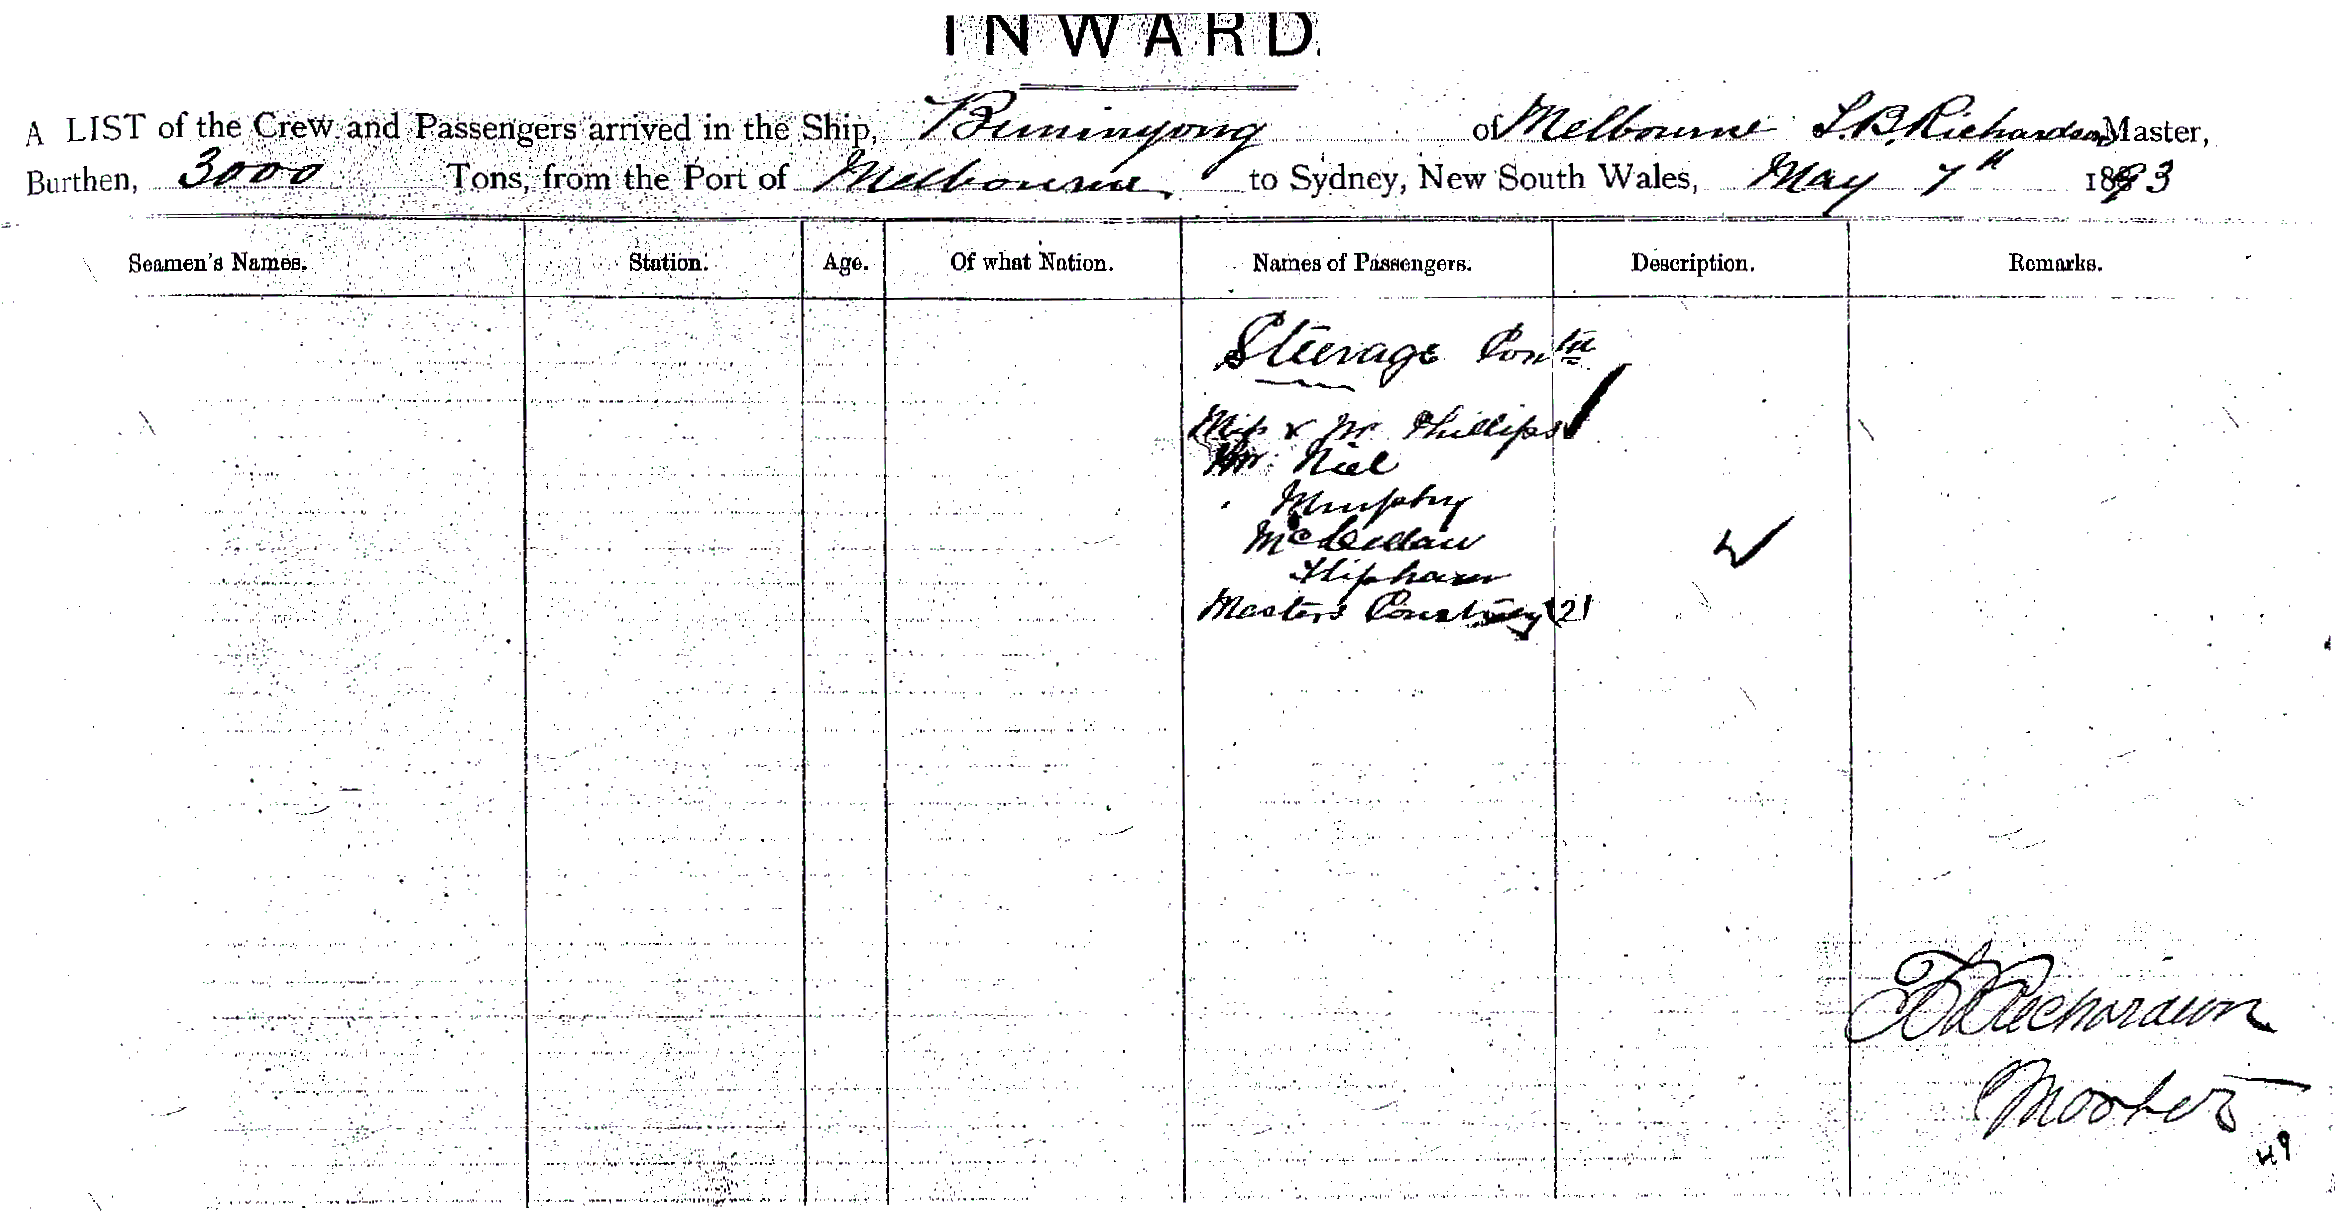 INWARD.
A LIST of the Crew and Passengers arrived in the Ship, Buninyong of Melbourne S.B. Richardson Master,
Burthen, 3000 Tons, from the Port of Melbourne to Sydney, New South Wales, May 7th 1893
Seamen's Names. Station. Age. Of what Nation. Names of Passengers. Description. Remarks.
Steerage Contd
Miss & Mr Phillips
Mr. Niel
Murphy
McLellan
Masters Courtney (2)
Richardson
Master
49